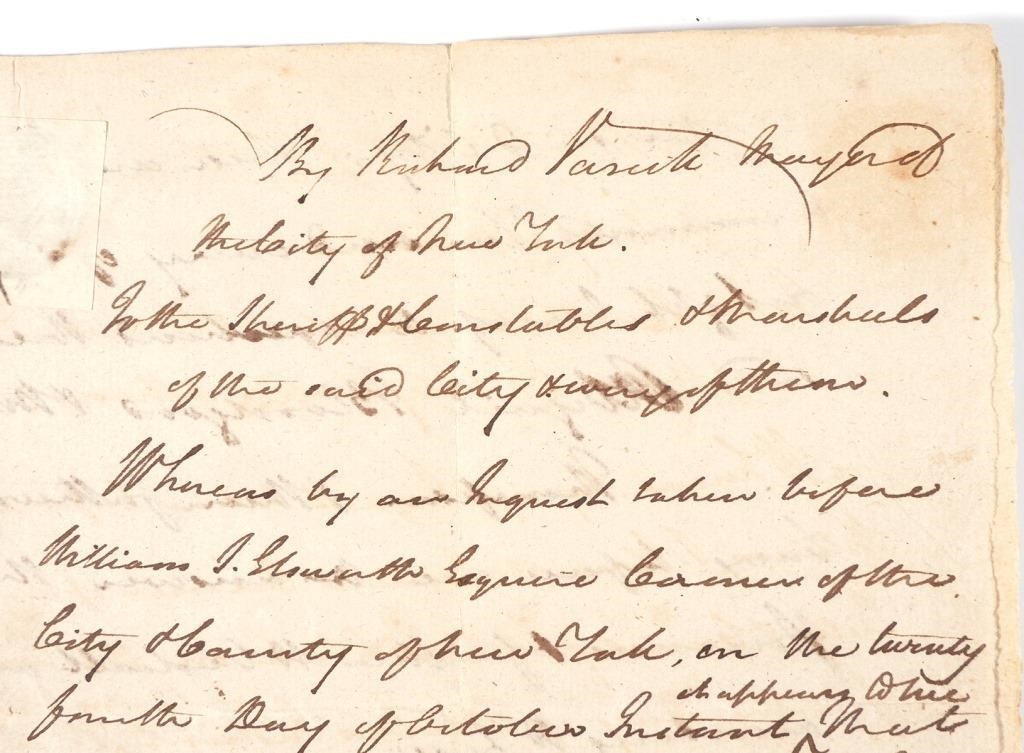 By Richard Varick Mayor of
the City of New York.
To the Sheriff & Constables & Marshals
of the said City & every of them.
Whereas by an Inquest taken before
William J. Elsworth Esquire Coroner of the
City & County of New York, on the twenty
it appears to me
fourth Day of October Instant That